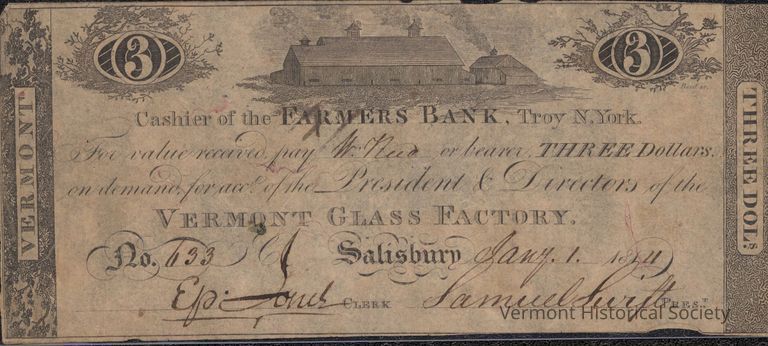 3 3
VERMONT
Cashier of the FARMERS BANK, Troy N,York.
For value received, pay Wm. Reed or bearer, THREE Dollars.
on demand, for acct. of the President & Directors of the
VERMONT GLASS FACTORY.
No. 633 Salisbury Jany. 1. 1814
Ep. Jones CLERK Samuel Swift PREST.
THREE DOLS.
Vermont Historical Society